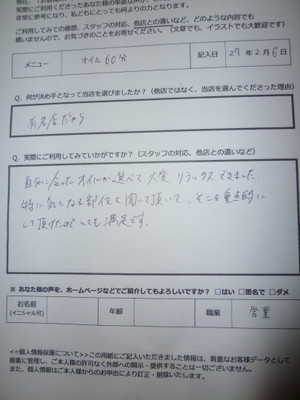 非常に参考になり、私どもにとっても何よりの力となります。
ご利用してみての感想、スタッフの対応、他店との違いなど、どのような内容でも
構いませんので、お気づきのことをお寄せください。(文章でも、イラストでも大歓迎です)
メニュー オイル60分 記入日 27年2月6日
Q. 何が決め手となって当店を選びましたか?(他店ではなく、当店を選んでくださった理由)
有名店だから
Q. 実際にご利用してみていかがですか?(スタッフの対応、他店との違いなど)
自分に合ったオイルが選べて大変リラックスできました。
特に気になる部位を聞いて頂いて、そこを重点的に
して頂けたのでとても満足です。
※ あなた様の声を、ホームページなどでご紹介してもよろしいですか? □はい □匿名で □ダメ
お名前 年齢 職業 営業
(イニシャル可)
<<個人情報保護について>>この用紙にご記入いただきました情報は、貴重なお客様データとして
厳重に管理し、ご本人様の許可なく外部への開示・提供することは一切ございません。
また、個人情報はご本人様からのお申出により訂正・削除いたします。